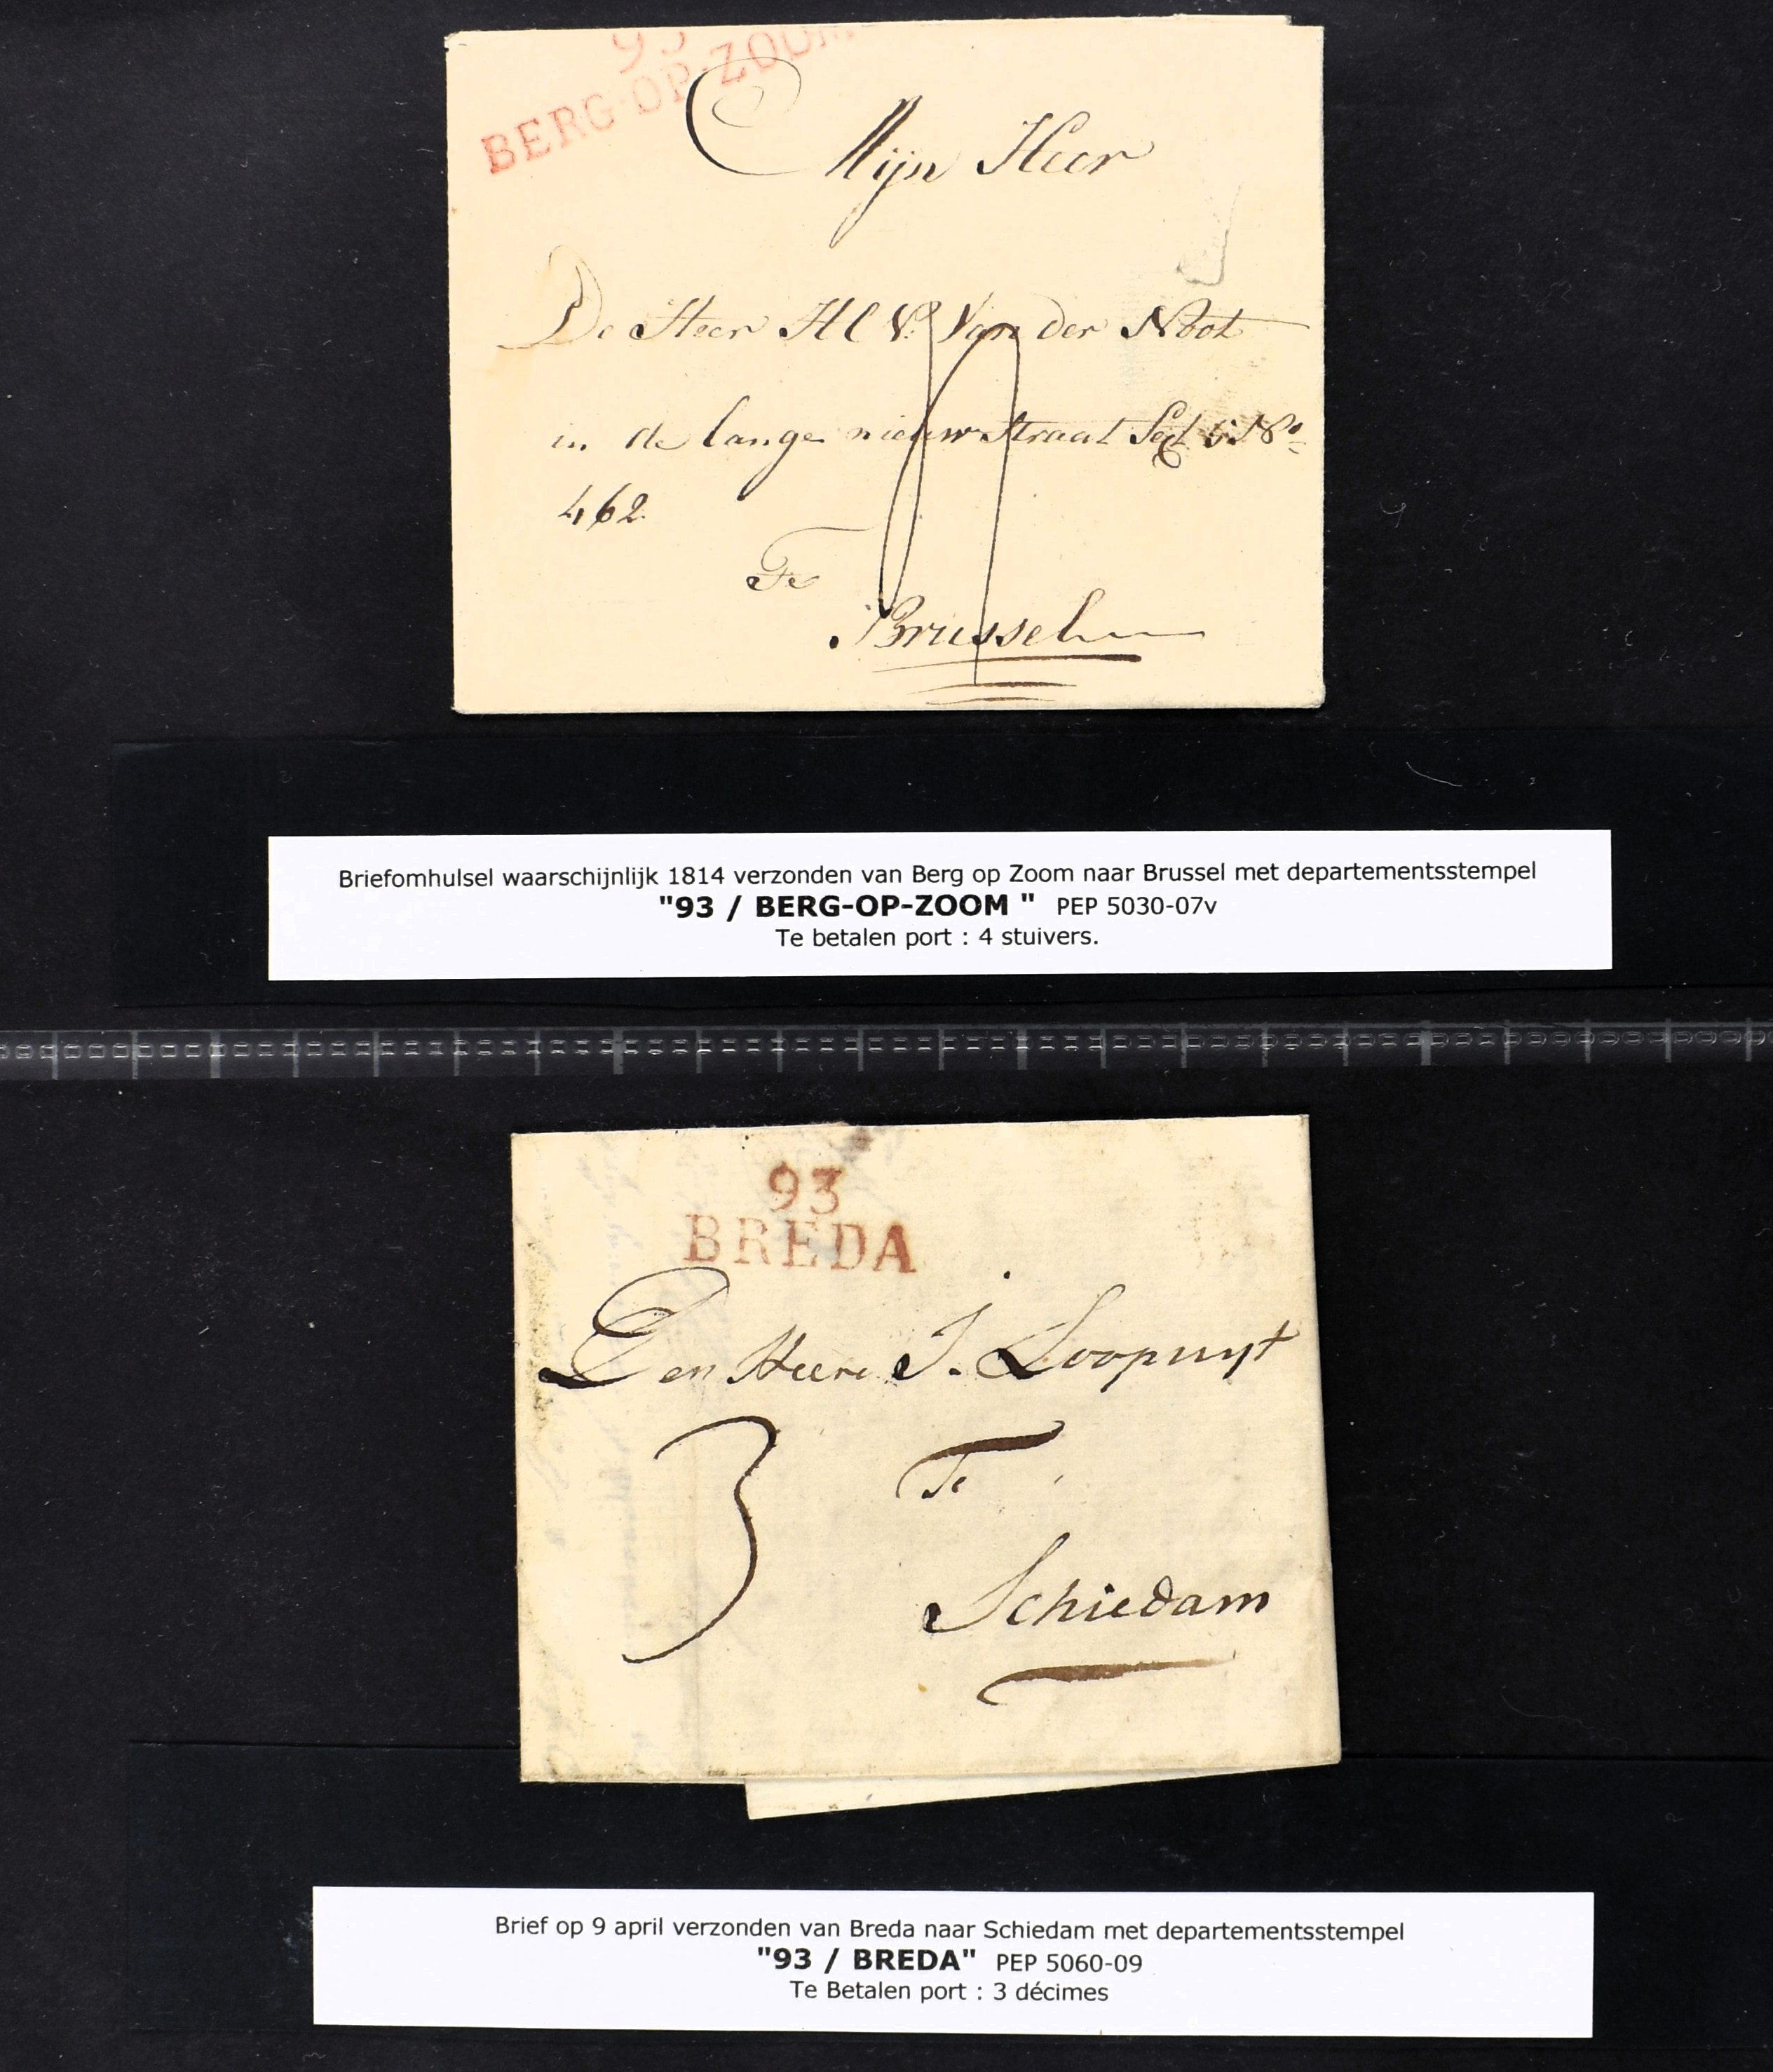 93
BERG-OP-ZOOM
Mijn Heer
De Heer H C V. Van der Noot
in de lange nieuw straat Sect 6 No
462.
4
Te
Brussel
Briefomhulsel waarschijnlijk 1814 verzonden van Berg op Zoom naar Brussel met departementsstempel
"93 / BERG-OP-ZOOM " PEP 5030-07v
Te betalen port : 4 stuivers.
93
BREDA
Den Heere J. Loopuyt
3
Te
Schiedam
Brief op 9 april verzonden van Breda naar Schiedam met departementsstempel
"93 / BREDA" PEP 5060-09
Te Betalen port : 3 décimes